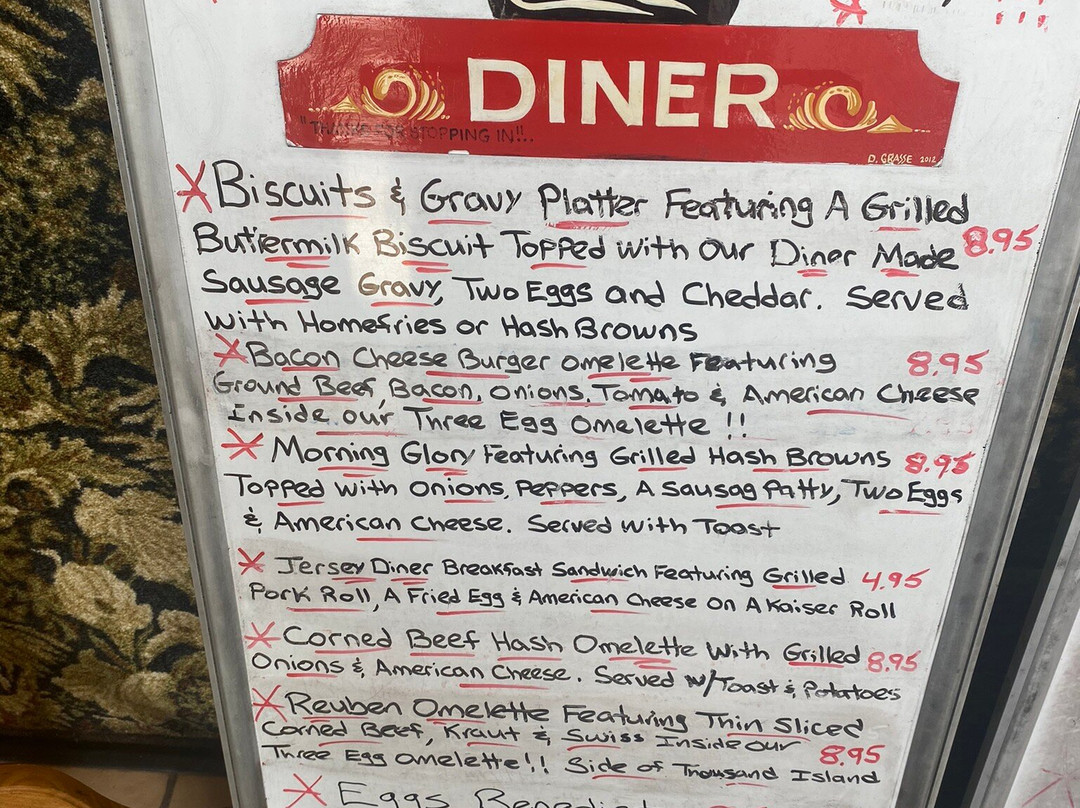 DINER
"THANKS FOR STOPPING IN!!..
D. GRASSE 2012
Biscuits & Gravy Platter Featuring A Grilled
Buttermilk Biscuit Topped with our Diner Made 8.95
Sausage Gravy, Two Eggs and Cheddar. Served
with Homefries or Hash Browns
Bacon Cheese Burger omelette Featuring 8.95
Ground Beef, Bacon, onions, Tomato & American Cheese
Inside our Three Egg omelette !!
Morning Glory Featuring Grilled Hash Browns 8.95
Topped with onions, Peppers, A Sausag Patty, Two Eggs
& American Cheese. Served with Toast
Jersey Diner Breakfast Sandwich Featuring Grilled 4.95
Pork Roll, A Fried Egg & American Cheese on A Kaiser Roll
Corned Beef Hash Omelette With Grilled 8.95
Onions & American Cheese. Served w/Toast & Potatoes
Reuben Omelette Featuring Thin Sliced
Corned Beef, Kraut & Swiss Inside our 8.95
Three Egg omelette!! Side of Thousand Island
Eggs